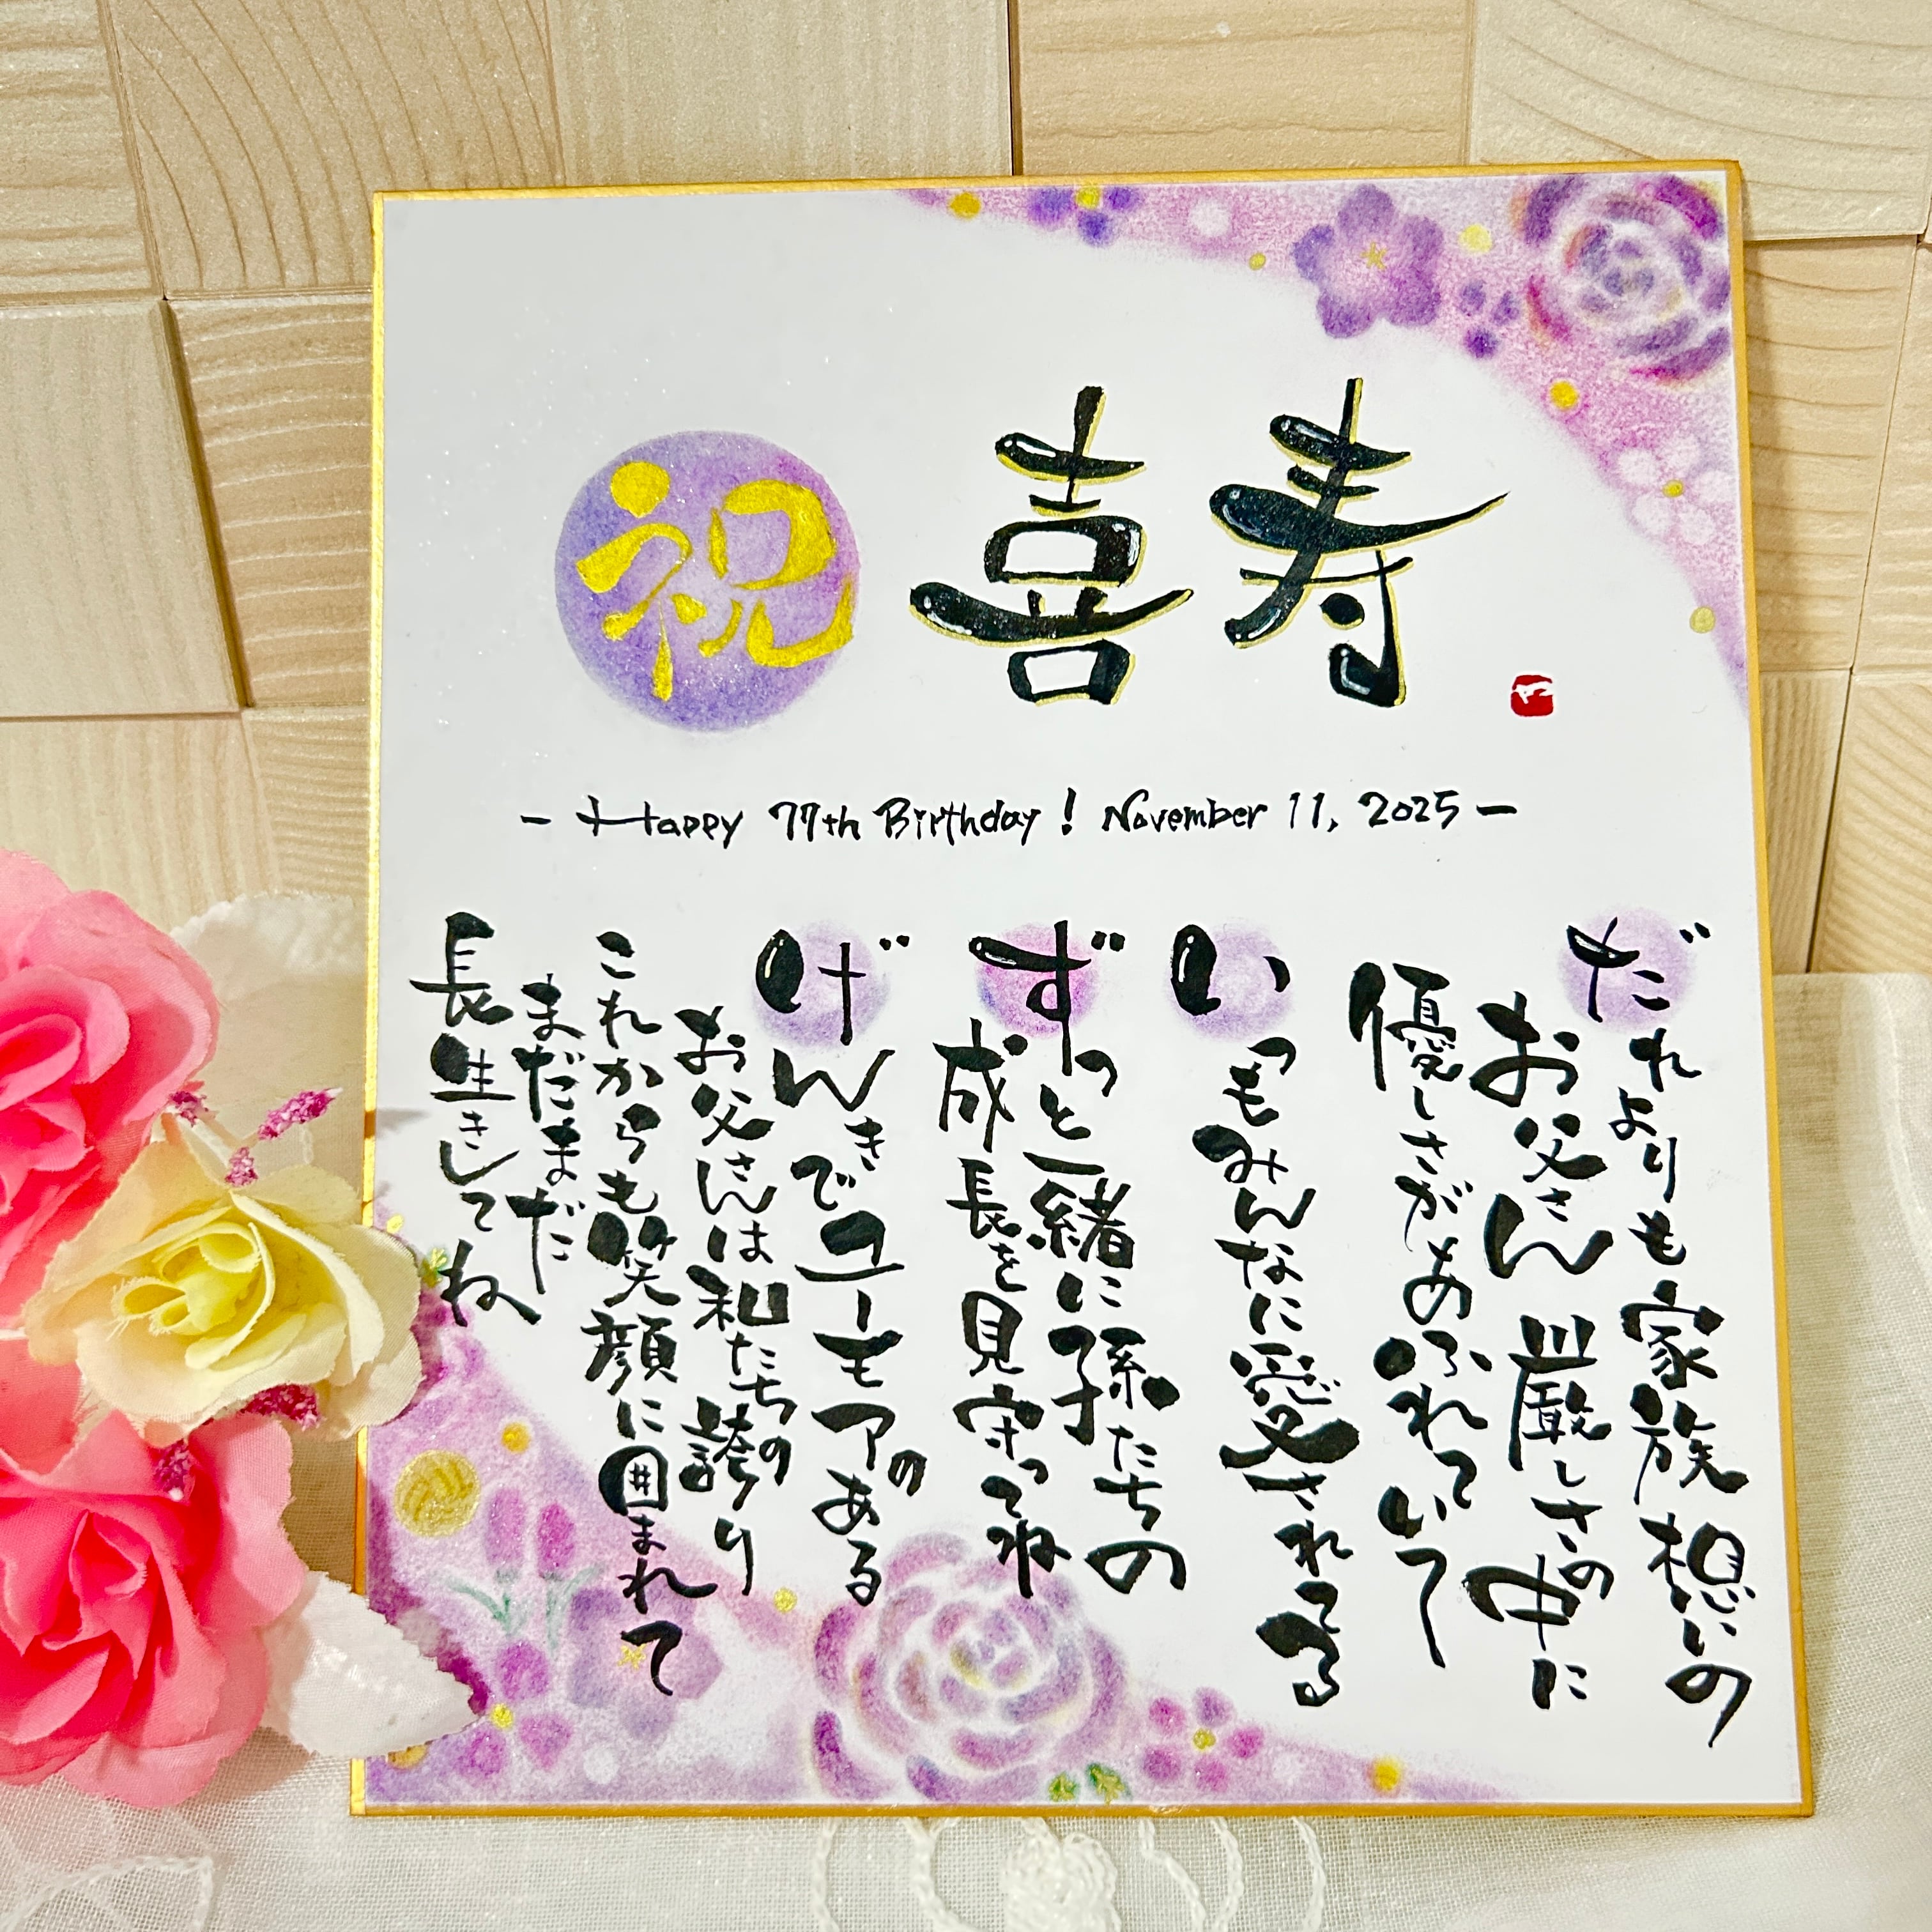 祝 喜寿
- Happy 77th Birthday! November 11, 2025 -
だれよりも家族想いの
お父さん 厳しさの中に
優しさがあふれていて
いつもみんなに愛されてる
ずっと一緒に孫たちの
成長を見守ってね
げんきでユーモアのある
お父さんは私たちの誇り
これからも笑顔に囲まれて
まだまだまだ
長生きしてね